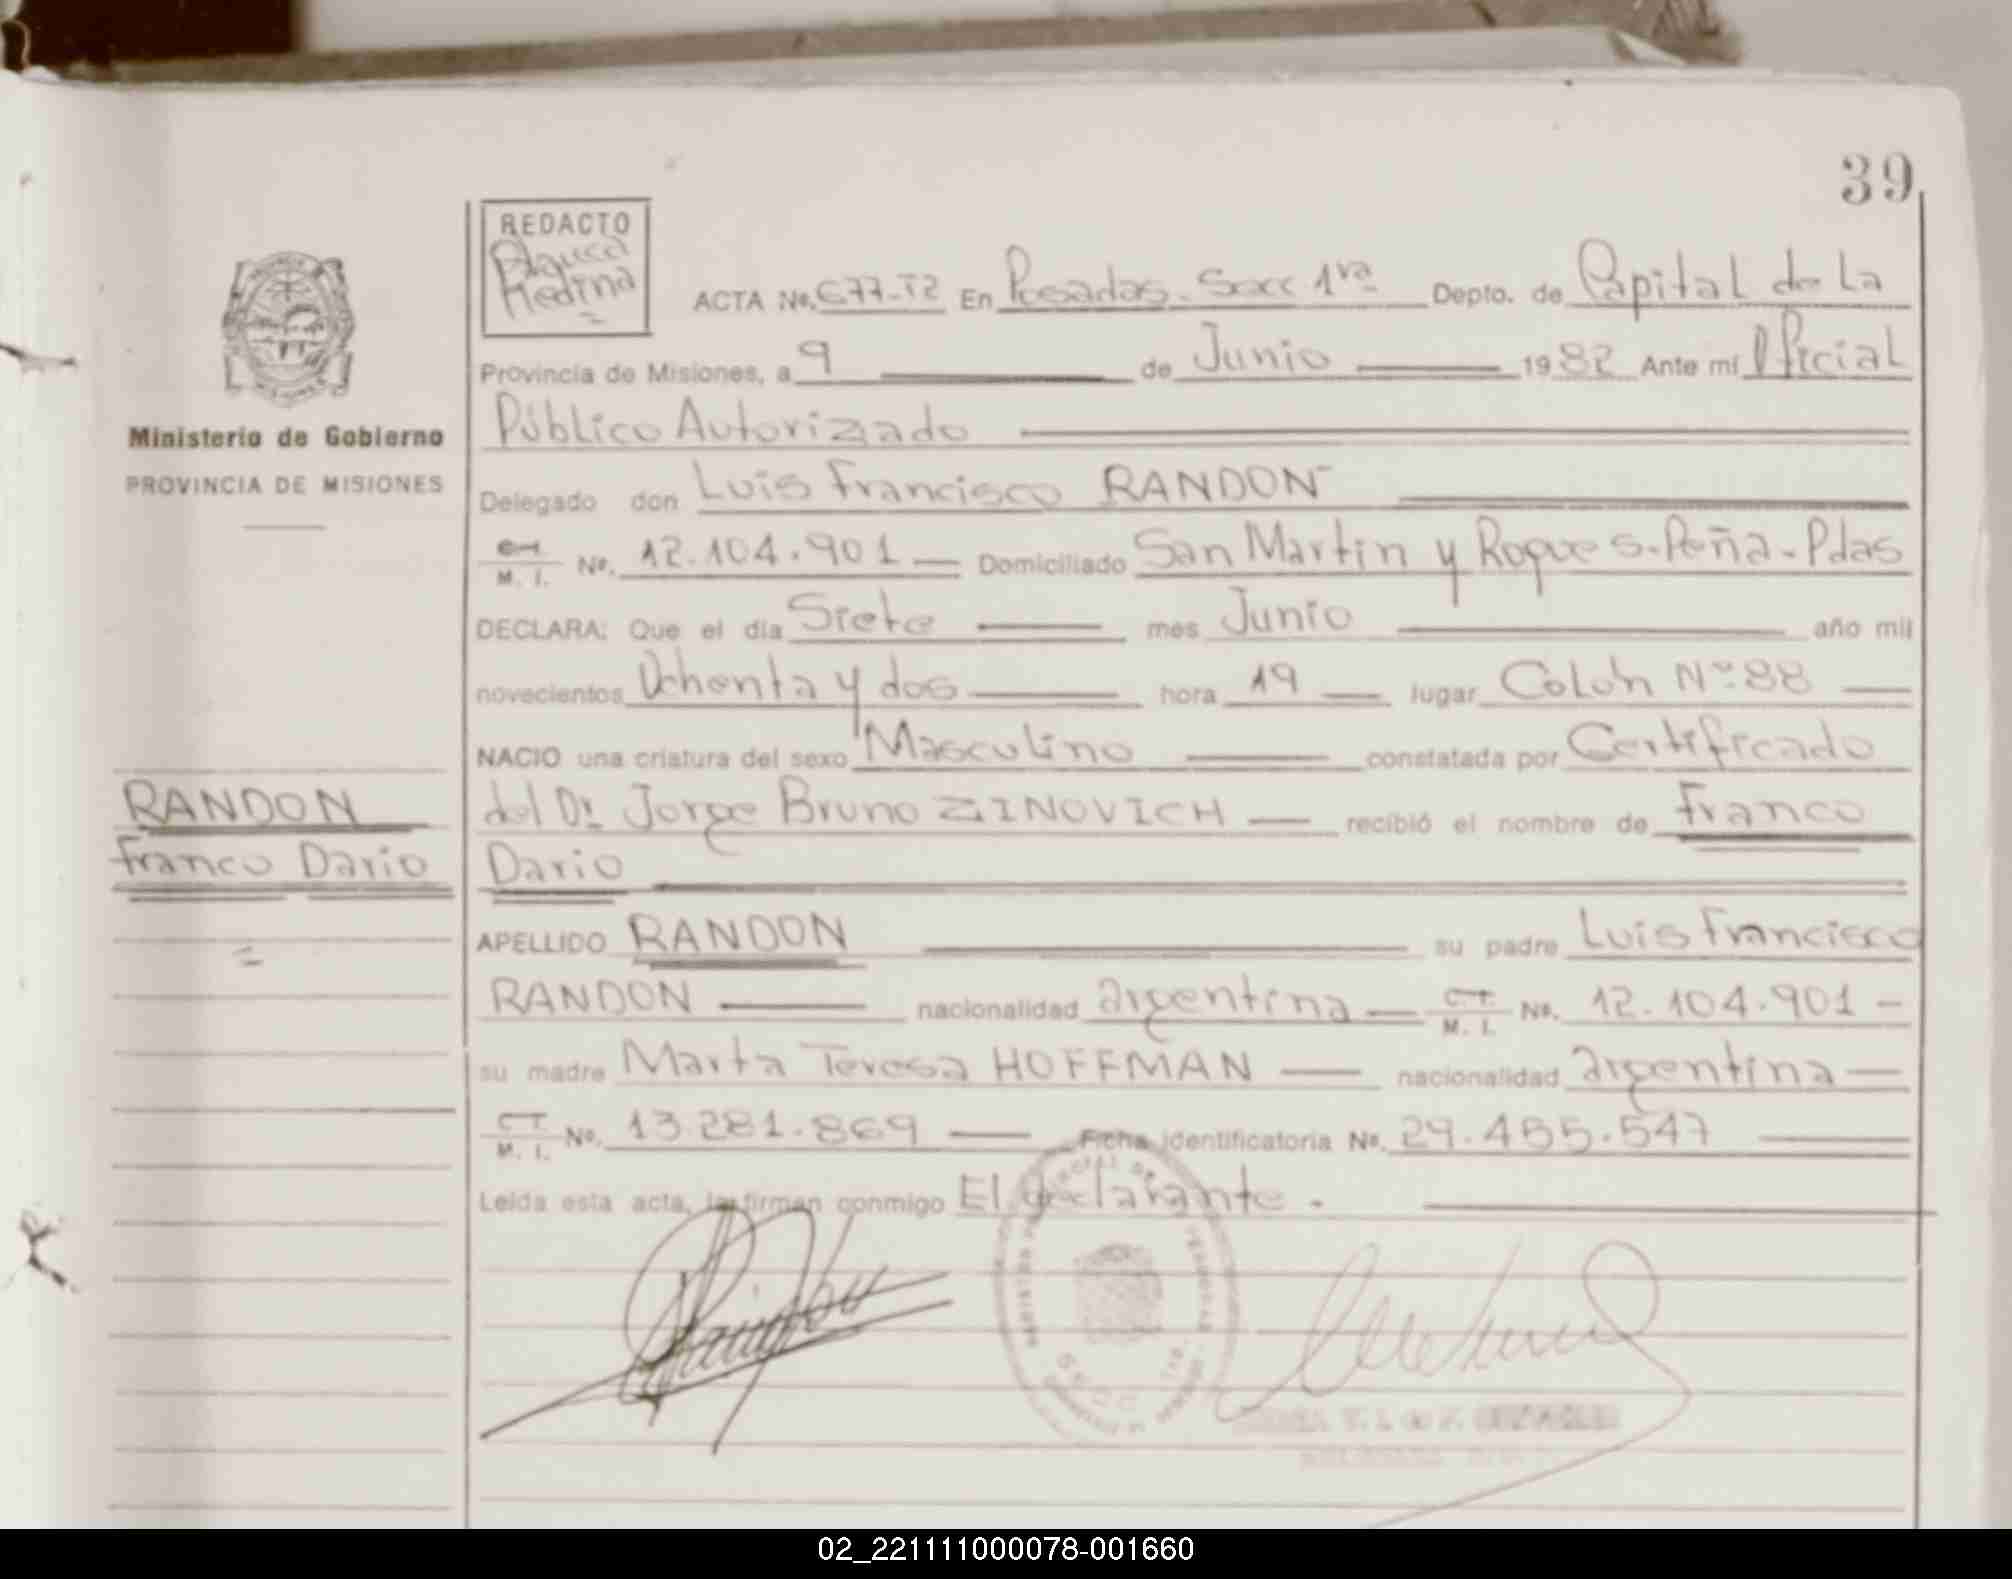 39
REDACTO
Medina
ACTA No. 677-T2 En Posadas - Secc 1ra Depto. de Capital de La
Provincia de Misiones, a 9 de Junio 1982 Ante mí Oficial
Público Autorizado
Delegado don Luis Francisco RANDON
M. I. No. 12.104.901 Domiciliado San Martin y Roque S. Peña - Pdas
DECLARA: Que el día Siete mes Junio año mil
novecientos Ochenta y dos hora 19 lugar Colón Nº 88
NACIO una criatura del sexo Masculino constatada por Certificado
del Dr. Jorge Bruno ZINOVICH recibió el nombre de Franco
Dario
APELLIDO RANDON su padre Luis Francisco
RANDON nacionalidad argentina C.I. M. I. No. 12.104.901 -
su madre Marta Teresa HOFFMAN nacionalidad argentina
C.I. M. I. No. 13.281.869 Ficha identificatoria No. 29.455.547
Leída esta acta, la firman conmigo El declarante.
Ministerio de Gobierno
PROVINCIA DE MISIONES
RANDON
Franco Dario
SECC 1ra.
02_221111000078-001660